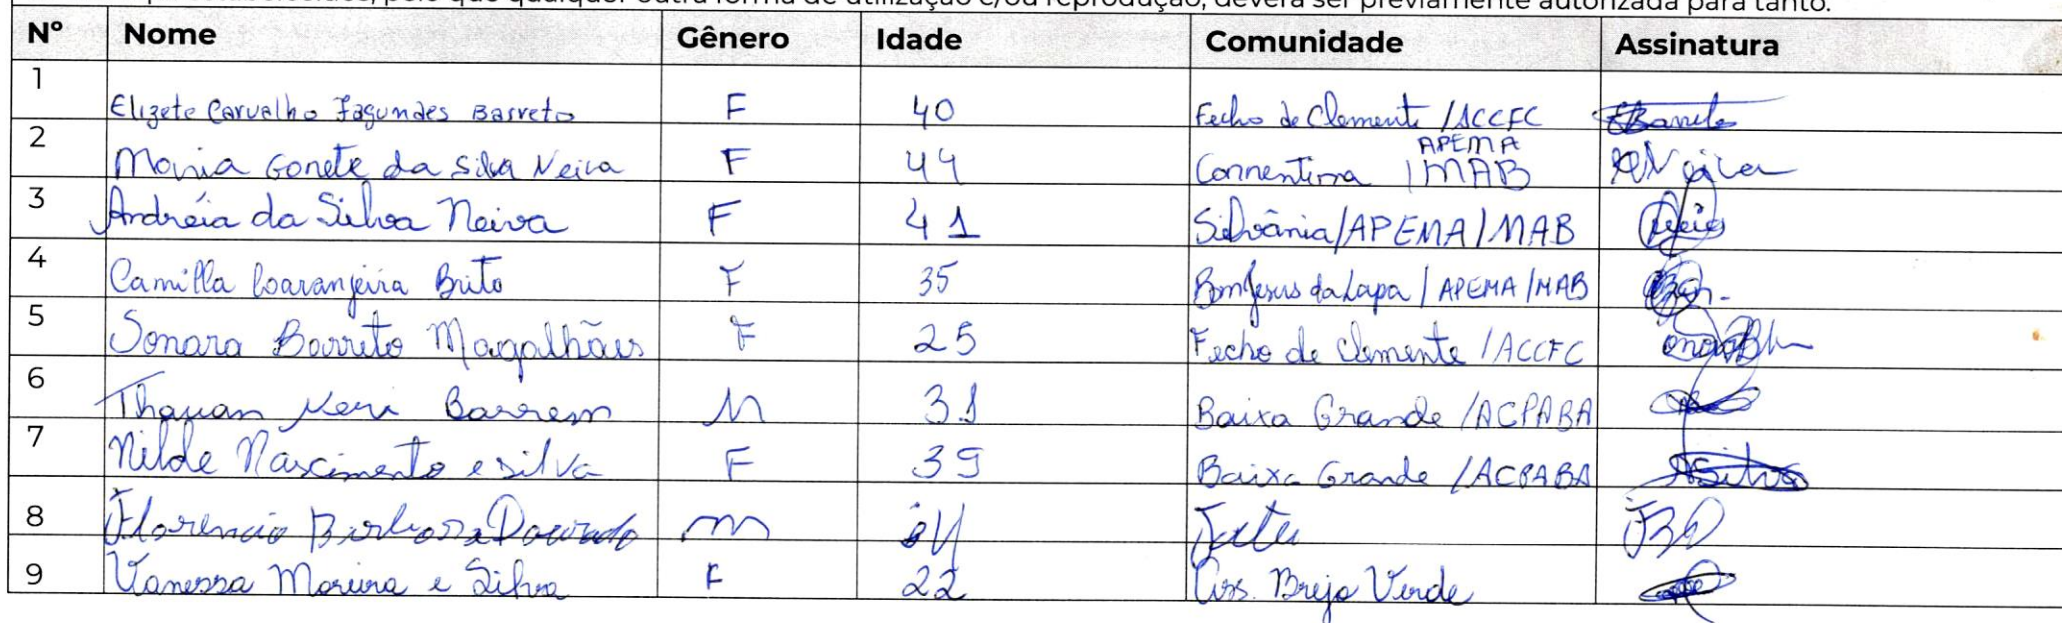 deverá ser previamente autorizada para tanto.
Nº Nome Gênero Idade Comunidade Assinatura
1 Elizete Carvalho Fagundes Barreto F 40 Fecho de Clemente /ACCFC EBarreto
2 Maria Gorete da Silva Neiva F 44 Correntina / APEMA MAB
3 Andréia da Silva Neiva F 41 Silvânia/APEMA/MAB
4 Camilla Laranjeira Brito F 35 Bom Jesus da Lapa / APEMA/MAB
5 Sonara Barreto Magalhães F 25 Fecho de Clemente /ACCFC
6 Thauan Neri M 31 Baixa Grande /ACPABA
7 Nilde Nascimento e silva F 39 Baixa Grande /ACPABA NSilva
8 Florencio Barbosa Dourado m FBD
9 Vanessa Moreira e Silva F 22 Ass. Brejo Verde